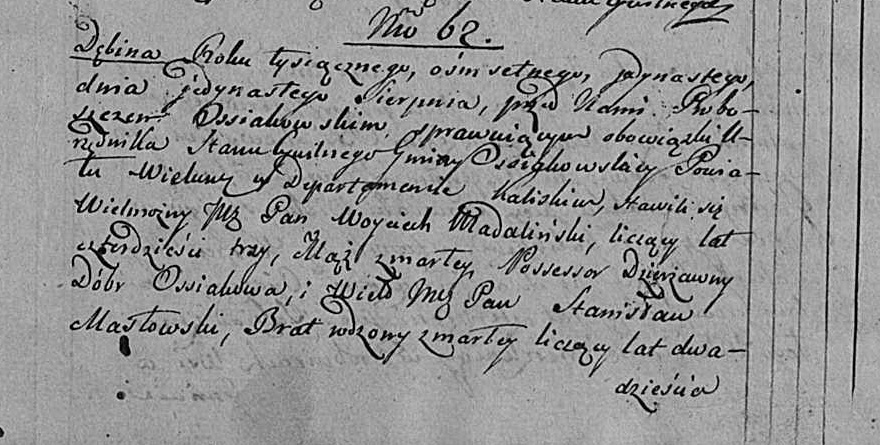 Nro 62.
Dębina Roku tysiącznego, ośmsetnego, jedynastego,
dnia jedynastego Sierpnia, przed Nami Probo-
szczem Ossiakowskim, sprawuiącym obowiązki U-
rzędnika Stanu Cywilnego Gminy Ossiakowskiey Powia-
tu Wieluny w Departamencie Kaliskim, stawili się
Wielmożny JMć Pan Woyciech Madaliński, liczący lat
czterdzieści trzy, Mąż zmarłey, Possessor Dzierżawny
Dóbr Ossiakowa, i Wielo JMć Pan Stanisław
Masłowski, Brat rodzony zmarłey liczący lat dwa-
dzieścia